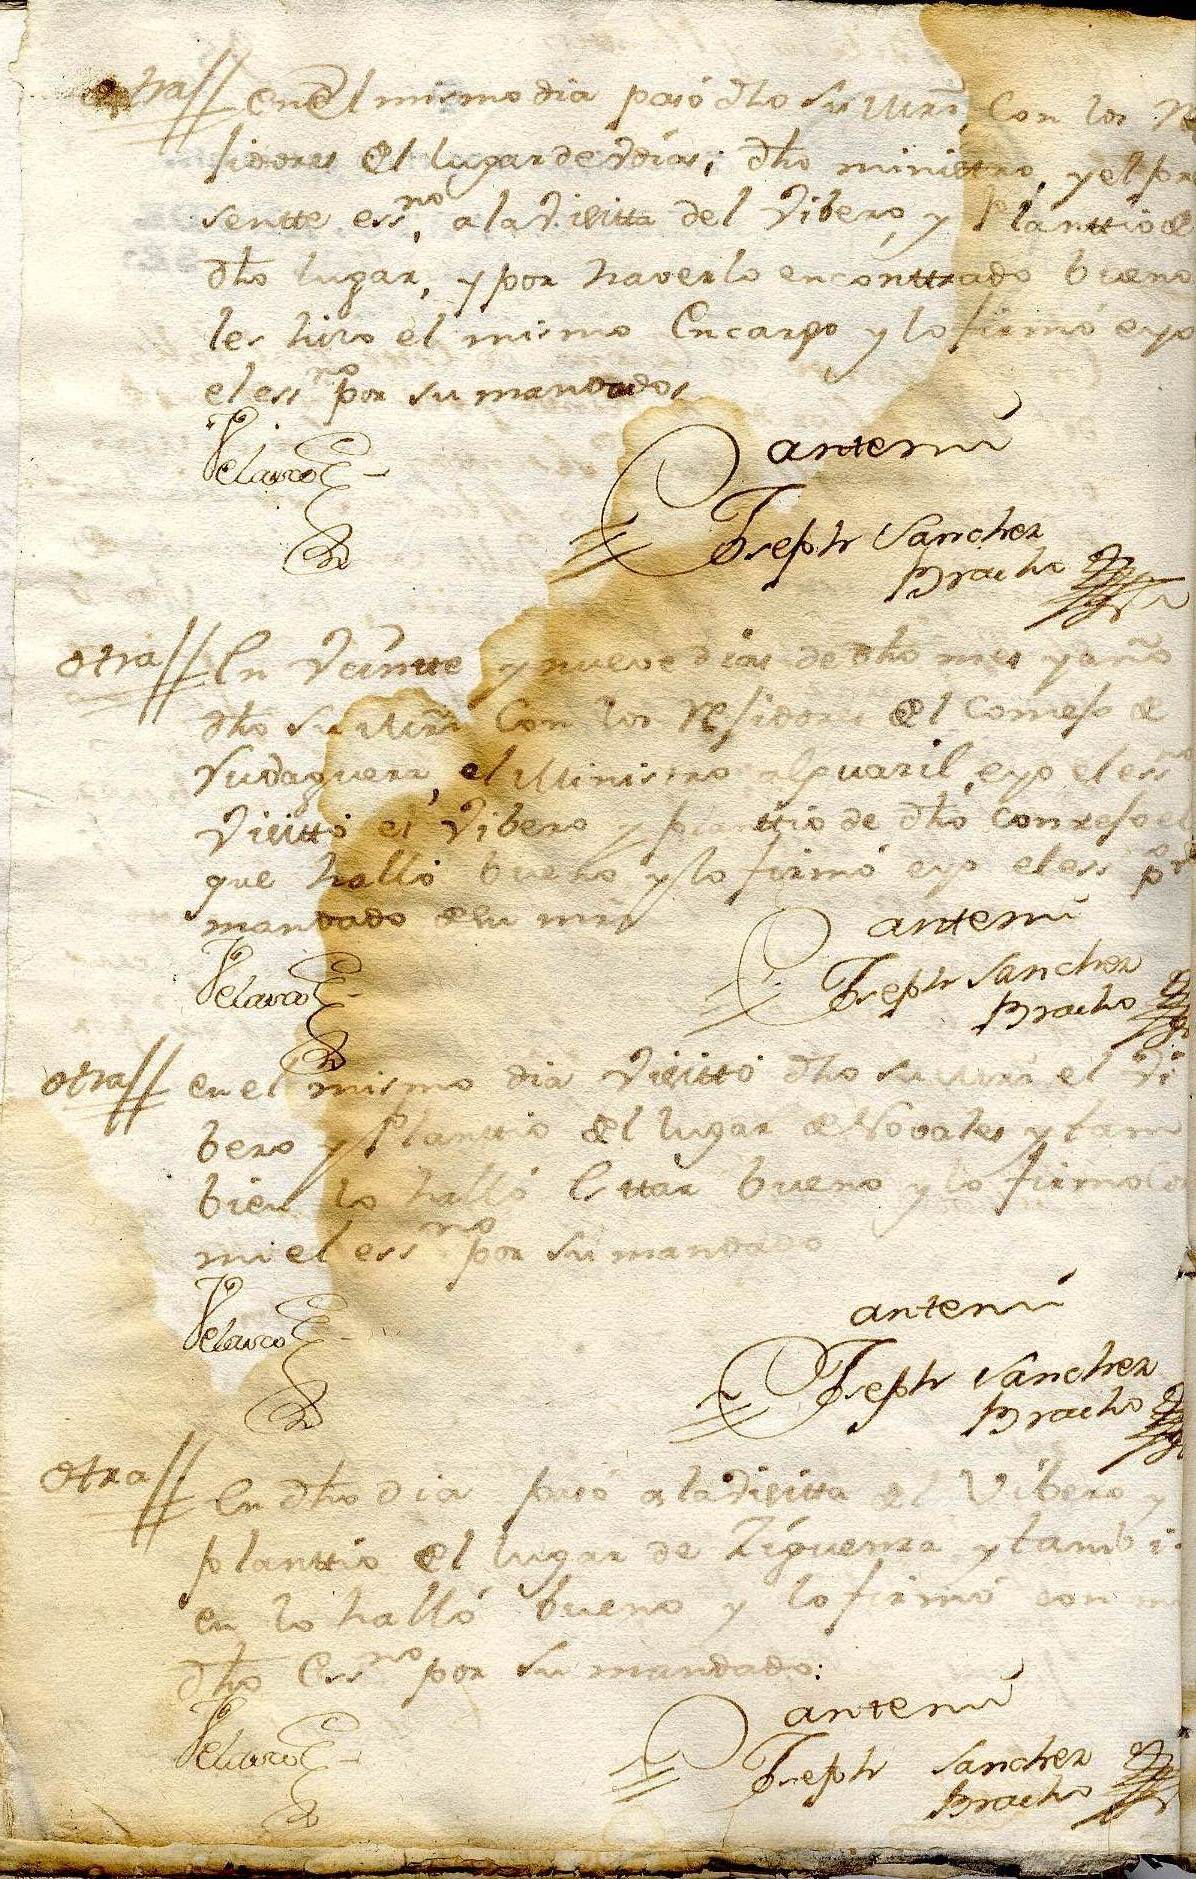 otra// en el mismo dia pasó dho su mrd, con los Re
sidores del lugar de Udias, dho ministro, y el pre
sentte essno, a la Visitta del Vibero, y planttio de
dho lugar, y por haverlo enconttrado bueno
les hizo el mismo Encargo y lo firmó e yo
el essno por su mandado
Velasco
antemi
Joseph Sanchez
Bracho
otra// En Veintte y nueve dias de dho mes y año
dho su mrd Con los Residores del Conzejo de
Rudaguera, el Ministro alguazil, e yo el essno
Visittó el Vibero y planttio de dho Conzejo el
que halló bueno y lo firmó e yo el essno por
mandado de su mrd
Velasco
antemi
Joseph Sanchez
Bracho
otra// en el mismo dia Visittó dho su mrd el Vi
bero y Planttio del lugar de Novales y tam
bien lo halló Esttar bueno y lo firmo con
mi el essno por su mandado
Velasco
antemi
Joseph Sanchez
Bracho
otra// En dho dia pasó a la Visitta del Vibero y
planttio del lugar de Zigüenza y tambi
en lo halló bueno y lo firmó con mi
dho Essno por su mandado:
Velasco
antemi
Joseph Sanchez
Bracho